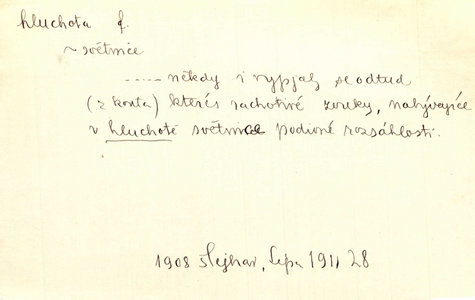 hluchota f.
~ světnice
----- někdy i vypjaly se odtud
(z kouta) kterés rachotivé zvuky, nabývajíce
v hluchotě světnice podivné rozsáhlosti.
1908 Šlejhar, Lípa 1911 28